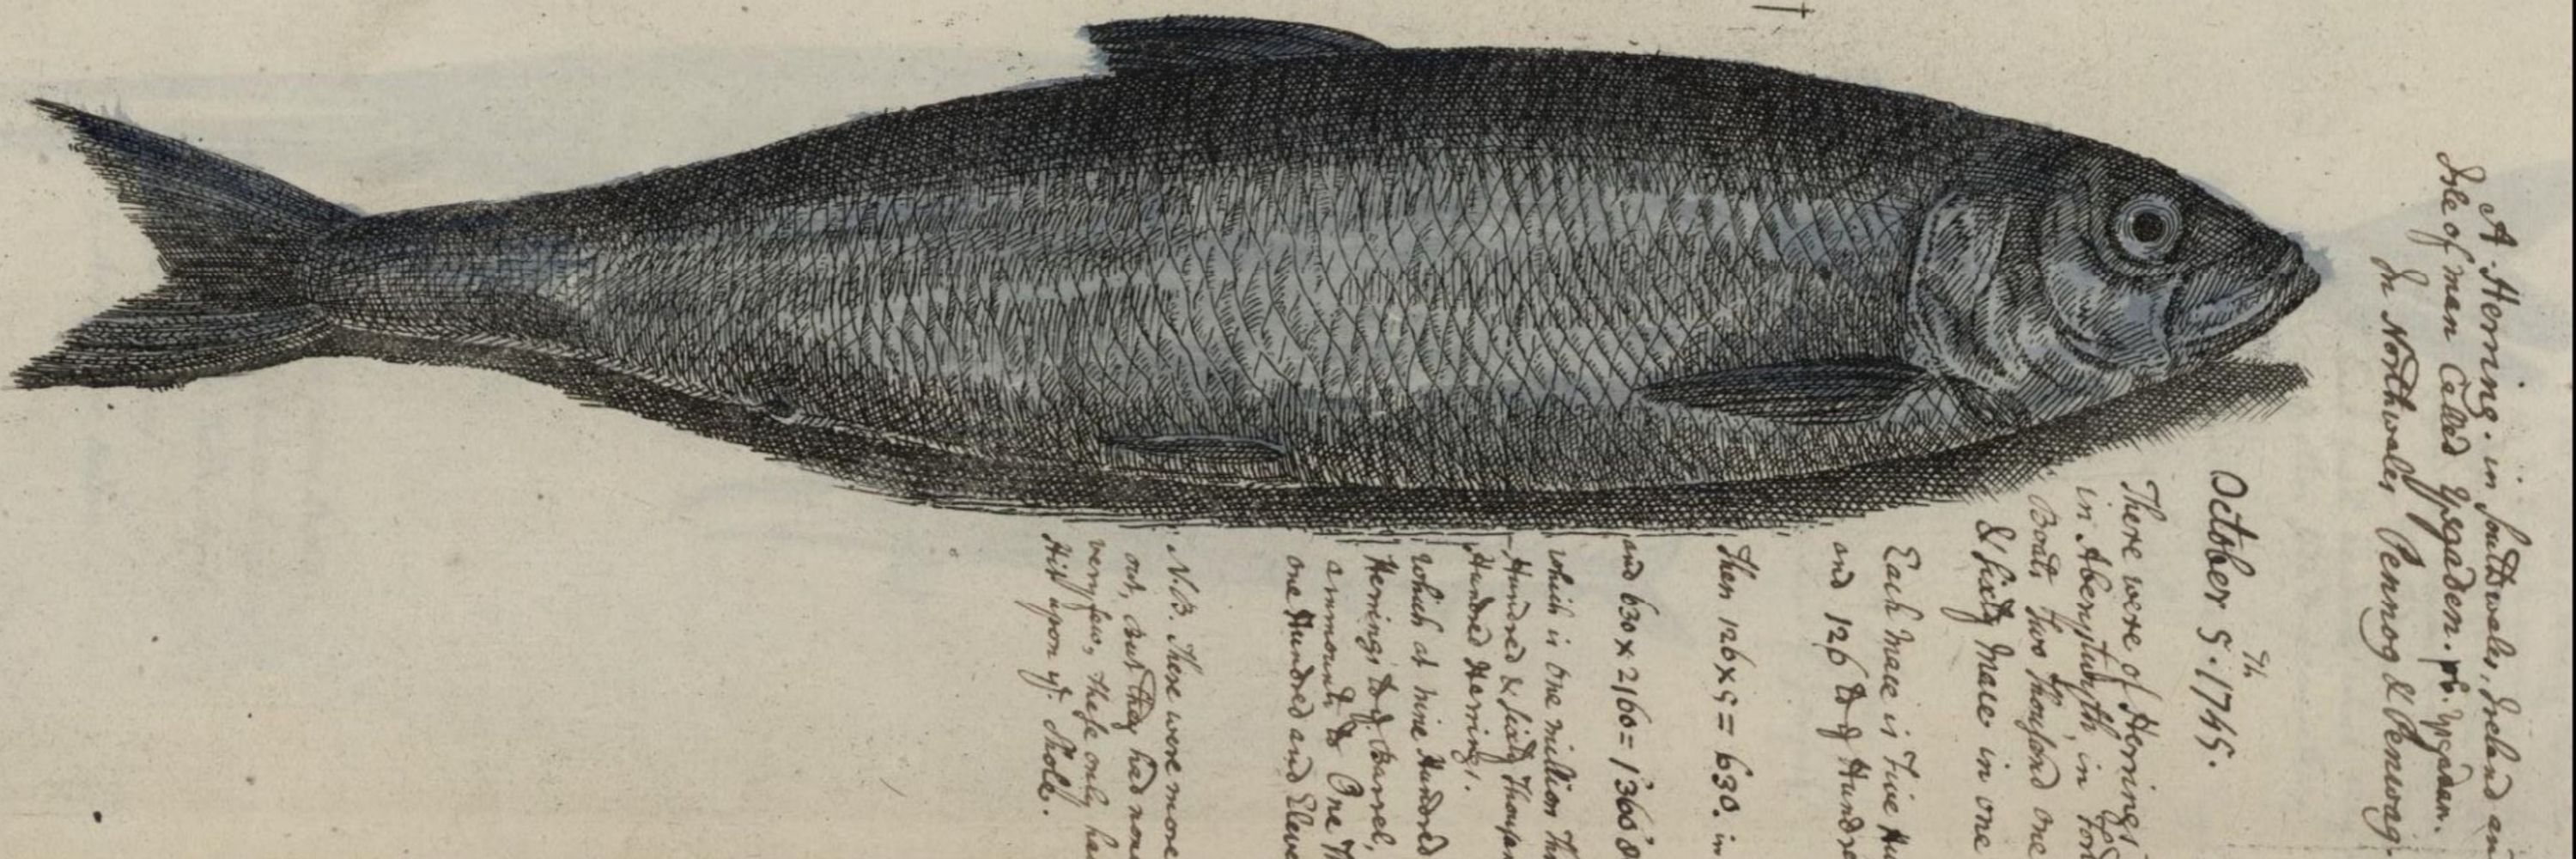 A Herring. in Southwales, Ireland an
Isle of man Called Ysgaden. Ysgadan.
In Northwales Pennog & Penwag.
October 5.th 1745.
There were of Herrings
in Aberystwyth, in
Boats Two Thousand One
& Sixty Mace in one
Each Mace is Five Hu
and 126 to ye Hundre
Then 126 x 5 = 630. in
and 630 x 2160 = 1'360'8
which is One million Th
Hundred & Sixty Thousan
Hundred Herrings.
which at nine Hundred
Herrings to ye Barrel,
ammounts to One Th
One Hundred and Eleve
N.B. There were more
out, but they had non
very few, these only ha
Hit upon ye Shole.